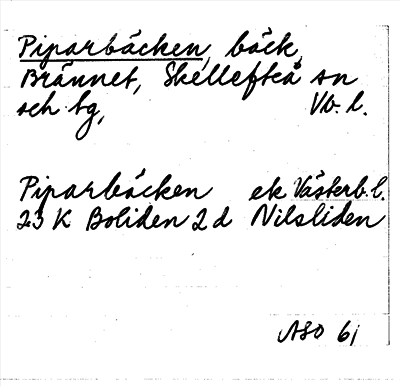 Piparbäcken, bäck,
Brännet, Skellefteå sn
och tg, Vb. l.
Piparbäcken ek Västerb. l.
23 K Boliden 2 d Nilsliden
ASO 61